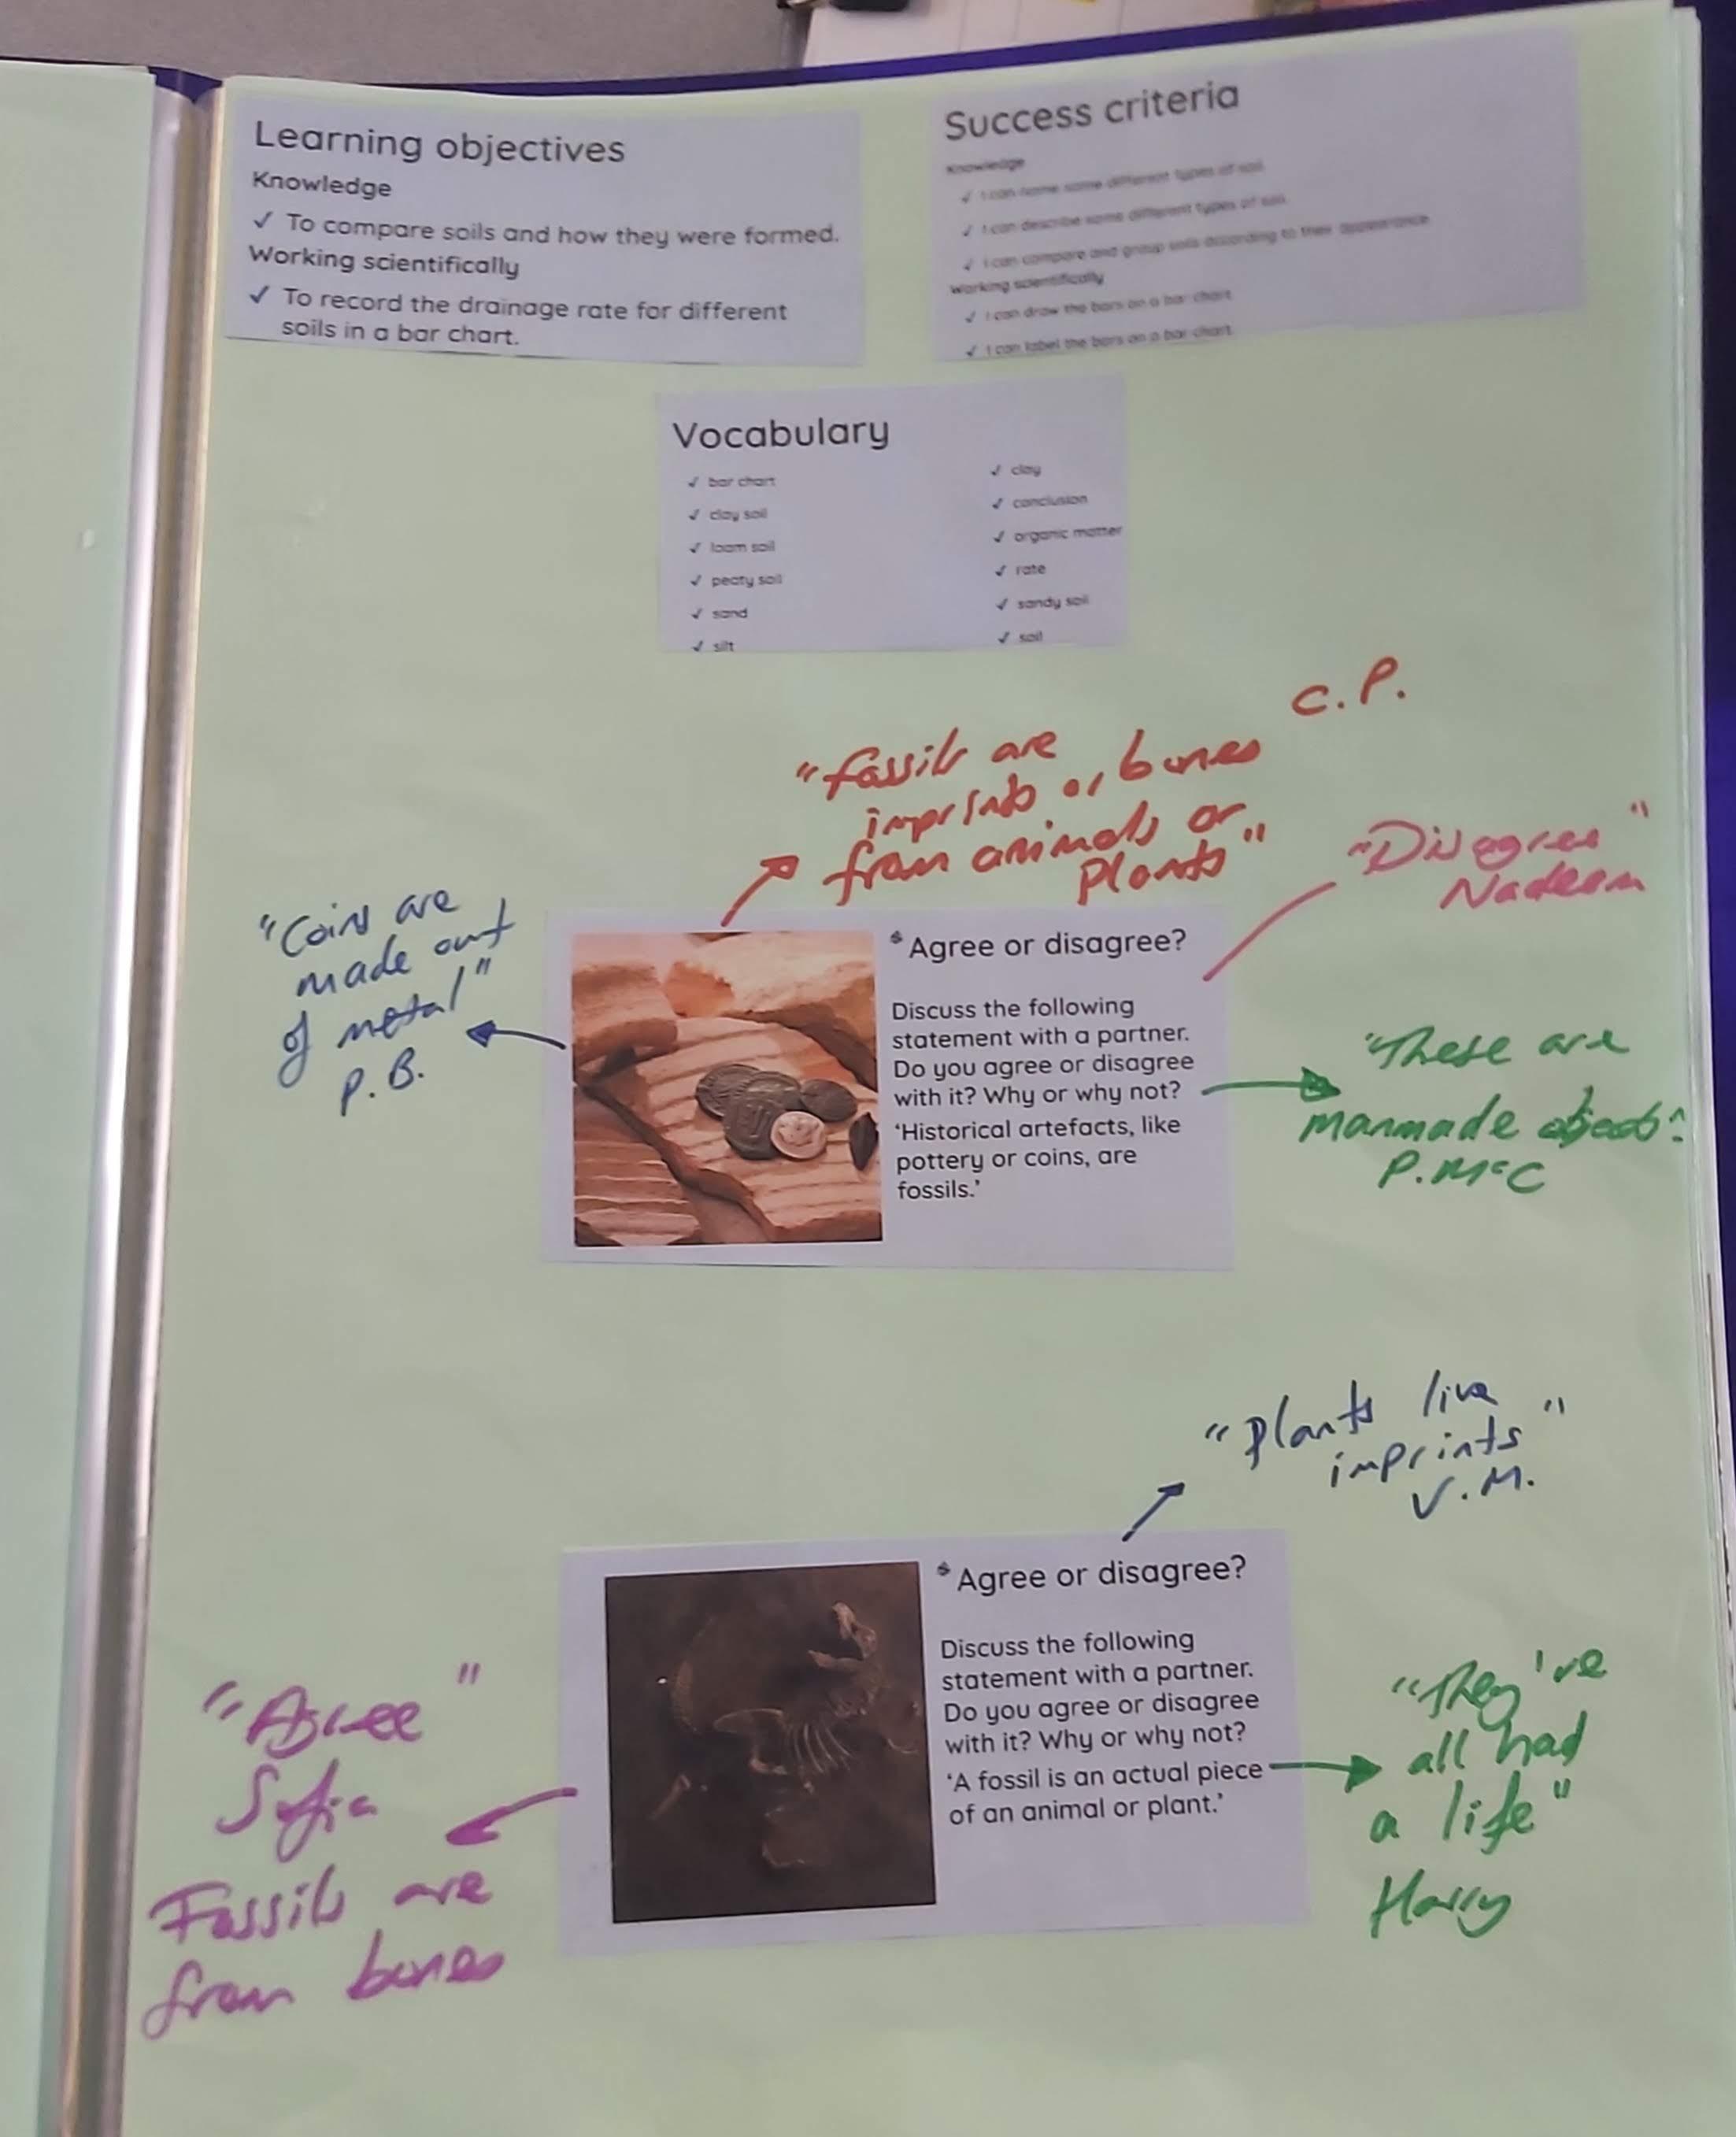 Learning objectives
Knowledge
✓ To compare soils and how they were formed.
Working scientifically
✓ To record the drainage rate for different
soils in a bar chart.
Success criteria
Knowledge
✓ I can name some different types of soil.
✓ I can describe some different types of soil.
✓ I can compare and group soils according to their appearance.
Working scientifically
✓ I can draw the bars on a bar chart.
✓ I can label the bars on a bar chart.
Vocabulary
✓ bar chart
✓ clay soil
✓ loam soil
✓ peaty soil
✓ sand
✓ silt
✓ clay
✓ conclusion
✓ organic matter
✓ rate
✓ sandy soil
✓ soil
C.P.
"fossils are
imprints or bones
from animals or
plants"
"Disagree"
Nadeem
"Coins are
made out
of metal"
P.B.
Agree or disagree?
Discuss the following
statement with a partner.
Do you agree or disagree
with it? Why or why not?
‘Historical artefacts, like
pottery or coins, are
fossils.’
"These are
manmade objects"
P.McC
"Plants live
imprints"
V.M.
Agree or disagree?
Discuss the following
statement with a partner.
Do you agree or disagree
with it? Why or why not?
‘A fossil is an actual piece
of an animal or plant.’
"Agree"
Sofia
Fossils are
from bones
"They've
all had
a life"
Harry